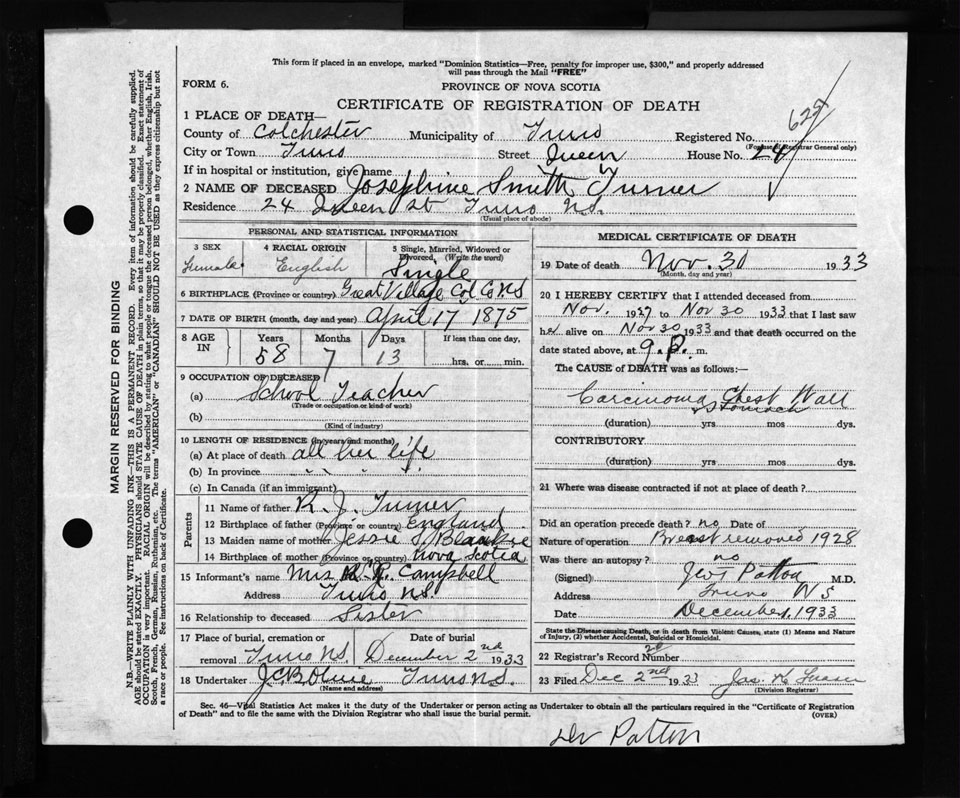 This form if placed in an envelope, marked "Dominion Statistics—Free, penalty for improper use, $300," and properly addressed
will pass through the Mail "FREE"
FORM 6.
PROVINCE OF NOVA SCOTIA
CERTIFICATE OF REGISTRATION OF DEATH
1 PLACE OF DEATH—
County of Colchester Municipality of Truro Registered No.
(For use of Registrar General only)
City or Town Truro Street Queen House No. 24
If in hospital or institution, give name
2 NAME OF DECEASED Josephine Smith Turner
Residence 24 Queen St Truro N.S.
(Usual place of abode)
PERSONAL AND STATISTICAL INFORMATION
3 SEX 4 RACIAL ORIGIN 5 Single, Married, Widowed or
Divorced, (Write the word)
Female English Single
6 BIRTHPLACE (Province or country) Great Village Col Co NS
7 DATE OF BIRTH (month, day and year) April 17 1875
8 AGE IN Years Months Days If less than one day,
58 7 13 hrs. or min.
9 OCCUPATION OF DECEASED
(a) School Teacher
(Trade or occupation or kind of work)
(b)
(Kind of industry)
10 LENGTH OF RESIDENCE (in years and months)
(a) At place of death all her life
(b) In province " " " "
(c) In Canada (if an immigrant)
Parents
11 Name of father R. J. Turner
12 Birthplace of father (Province or country) England
13 Maiden name of mother Jessie S. Blaikie
14 Birthplace of mother (Province or country) Nova Scotia
15 Informant's name Mrs R. Campbell
Address Truro N.S.
16 Relationship to deceased Sister
17 Place of burial, cremation or Date of burial
removal Truro N.S. December 2nd 1933
18 Undertaker Truro N.S.
(Name and address)
MEDICAL CERTIFICATE OF DEATH
19 Date of death Nov. 30 1933
(Month, day and year)
20 I HEREBY CERTIFY that I attended deceased from
Nov. 1927 to Nov 30 1933 that I last saw
her alive on Nov 30 1933 and that death occurred on the
date stated above, at 9 P. m.
The CAUSE of DEATH was as follows:—
Carcinoma Chest Wall
& Stomach
(duration) yrs mos dys.
CONTRIBUTORY
(duration) yrs. mos. dys.
21 Where was disease contracted if not at place of death?
Did an operation precede death? no Date of
Nature of operation Breast removed 1928
Was there an autopsy? no
(Signed) Patton M.D.
Address Truro N S
Date December 1, 1933
State the Disease causing Death, or in death from Violent Causes, state (1) Means and Nature
of Injury, (2) whether Accidental, Suicidal or Homicidal.
22 Registrar's Record Number
23 Filed Dec 2nd 1933 Jas. K Fraser
(Division Registrar)
Sec. 46—Vital Statistics Act makes it the duty of the Undertaker or person acting as Undertaker to obtain all the particulars required in the "Certificate of Registration
of Death" and to file the same with the Division Registrar who shall issue the burial permit. (OVER)
Dr Patton
MARGIN RESERVED FOR BINDING
N.B.—WRITE PLAINLY WITH UNFADING INK—THIS IS A PERMANENT RECORD. Every item of information should be carefully supplied.
AGE should be stated EXACTLY. PHYSICIANS should STATE CAUSE OF DEATH in plain terms, so that it may be properly classified. Exact statement of
OCCUPATION is very important. RACIAL ORIGIN will be described by stating to what people or tongue the deceased person belonged, whether English, Irish,
Scotch, French, German, Russian, Ruthenian, etc. The terms "AMERICAN" or "CANADIAN" SHOULD NOT BE USED as they express citizenship but not
a race or people. See instructions on back of Certificate.